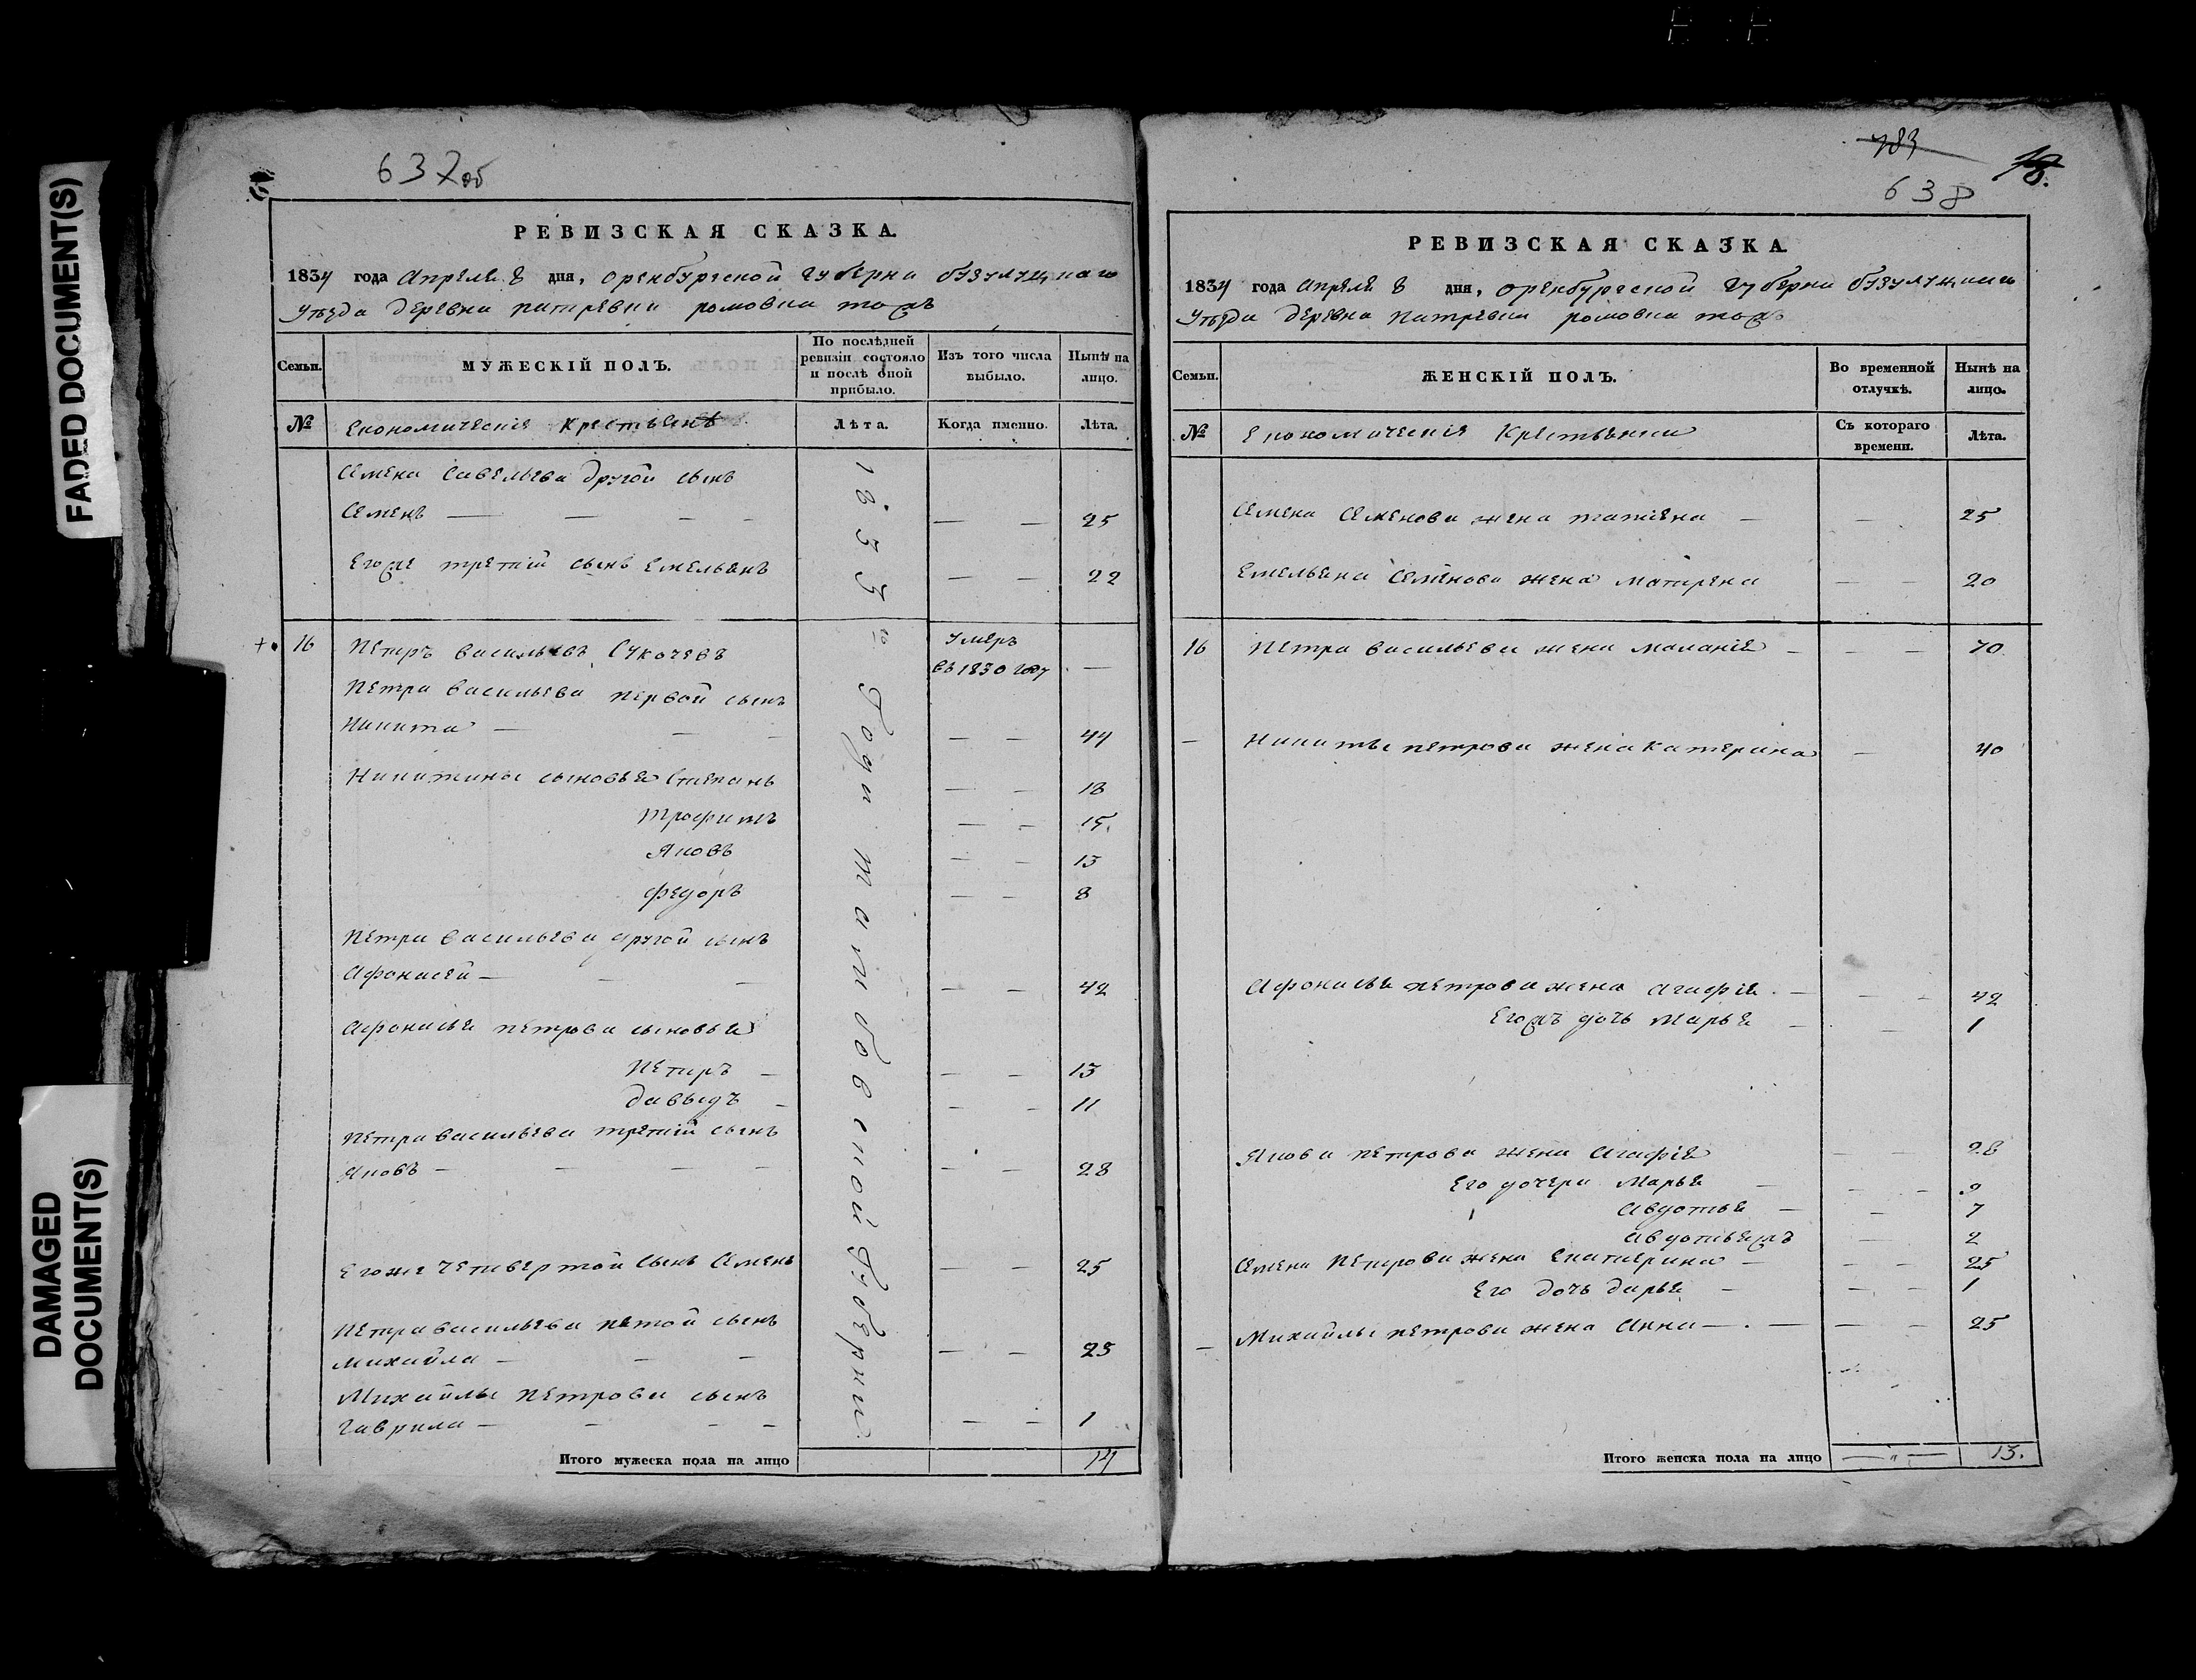 FADED DOCUMENT(S)
DAMAGED
DOCUMENT(S)
637об
РЕВИЗСКАЯ СКАЗКА.
1834 года Апреля 8 дня, оренбургской губерни бузулуцкаго
уезда деревни петревки ромовка тожъ
Семьи.
МУЖЕСКІЙ ПОЛЪ.
По послѣдней ревизіи состояло и послѣ оной прибыло.
Изъ того числа выбыло.
Нынѣ на лицо.
№
Економическия крестьяне
Лѣта.
Когда именно.
Лѣта.
Семена Савельева другой сынъ
Семенъ — — — — — 25
Егоже третий сынъ Емельянъ — — 22
1833го Года тамбовской Губернии
16 Петръ васильевъ Сукочевъ умеръ въ 1830 году —
Петра васильева первой сынъ
Никита — — — — — 44
Никитины сыновья Степанъ — — 18
трофимъ — — 15.
Яковъ — — 13
федоръ — — 8
Петра васильева другой сынъ
Афонасей — — — — — 42
Афонасья петрова сыновья
Петръ — — — 13
давыдъ — — — 11
Петра васильева третий сынъ
Яковъ — — — — — — 28
Егоже четвертой сынъ Семенъ — — 25
Петра васильева пятой сынъ
михайла — — — — — 25
Михайлы петрова сынъ
гаврила — — — — — — 1
Итого мужеска пола на лицо 14
783
638
РЕВИЗСКАЯ СКАЗКА.
1834 года Апреля 8 дня, оренбургской губерни бузулуцкаго
уезда деревна петревки ромовка тожъ
Семьи.
ЖЕНСКІЙ ПОЛЪ.
Во временной отлучкѣ.
Нынѣ на лицо.
№
Економическия Крестьянки
Съ котораго времени.
Лѣта.
Семена Семенова жена татиена — — 25
Емельяна Семенова жена матрена — — 20
16 Петра васильева жена маланiя — — — 70
— Никиты петрова жена катерина — 40
Афонасья петрова жена агафiя. — — — 42
Егожъ дочь Марья — — 1
Якова петрова жена Агафiя — — 28
Его дочери Марья — — — 9
Авдотья — — 7
авдотьяжъ — 2
Семена петрова жена Екатерина — — — 25
Его дочь дарья — — — 1
— Михайлы петрова жена Анна — . — — — 25
Итого женска пола на лицо — " — 13.